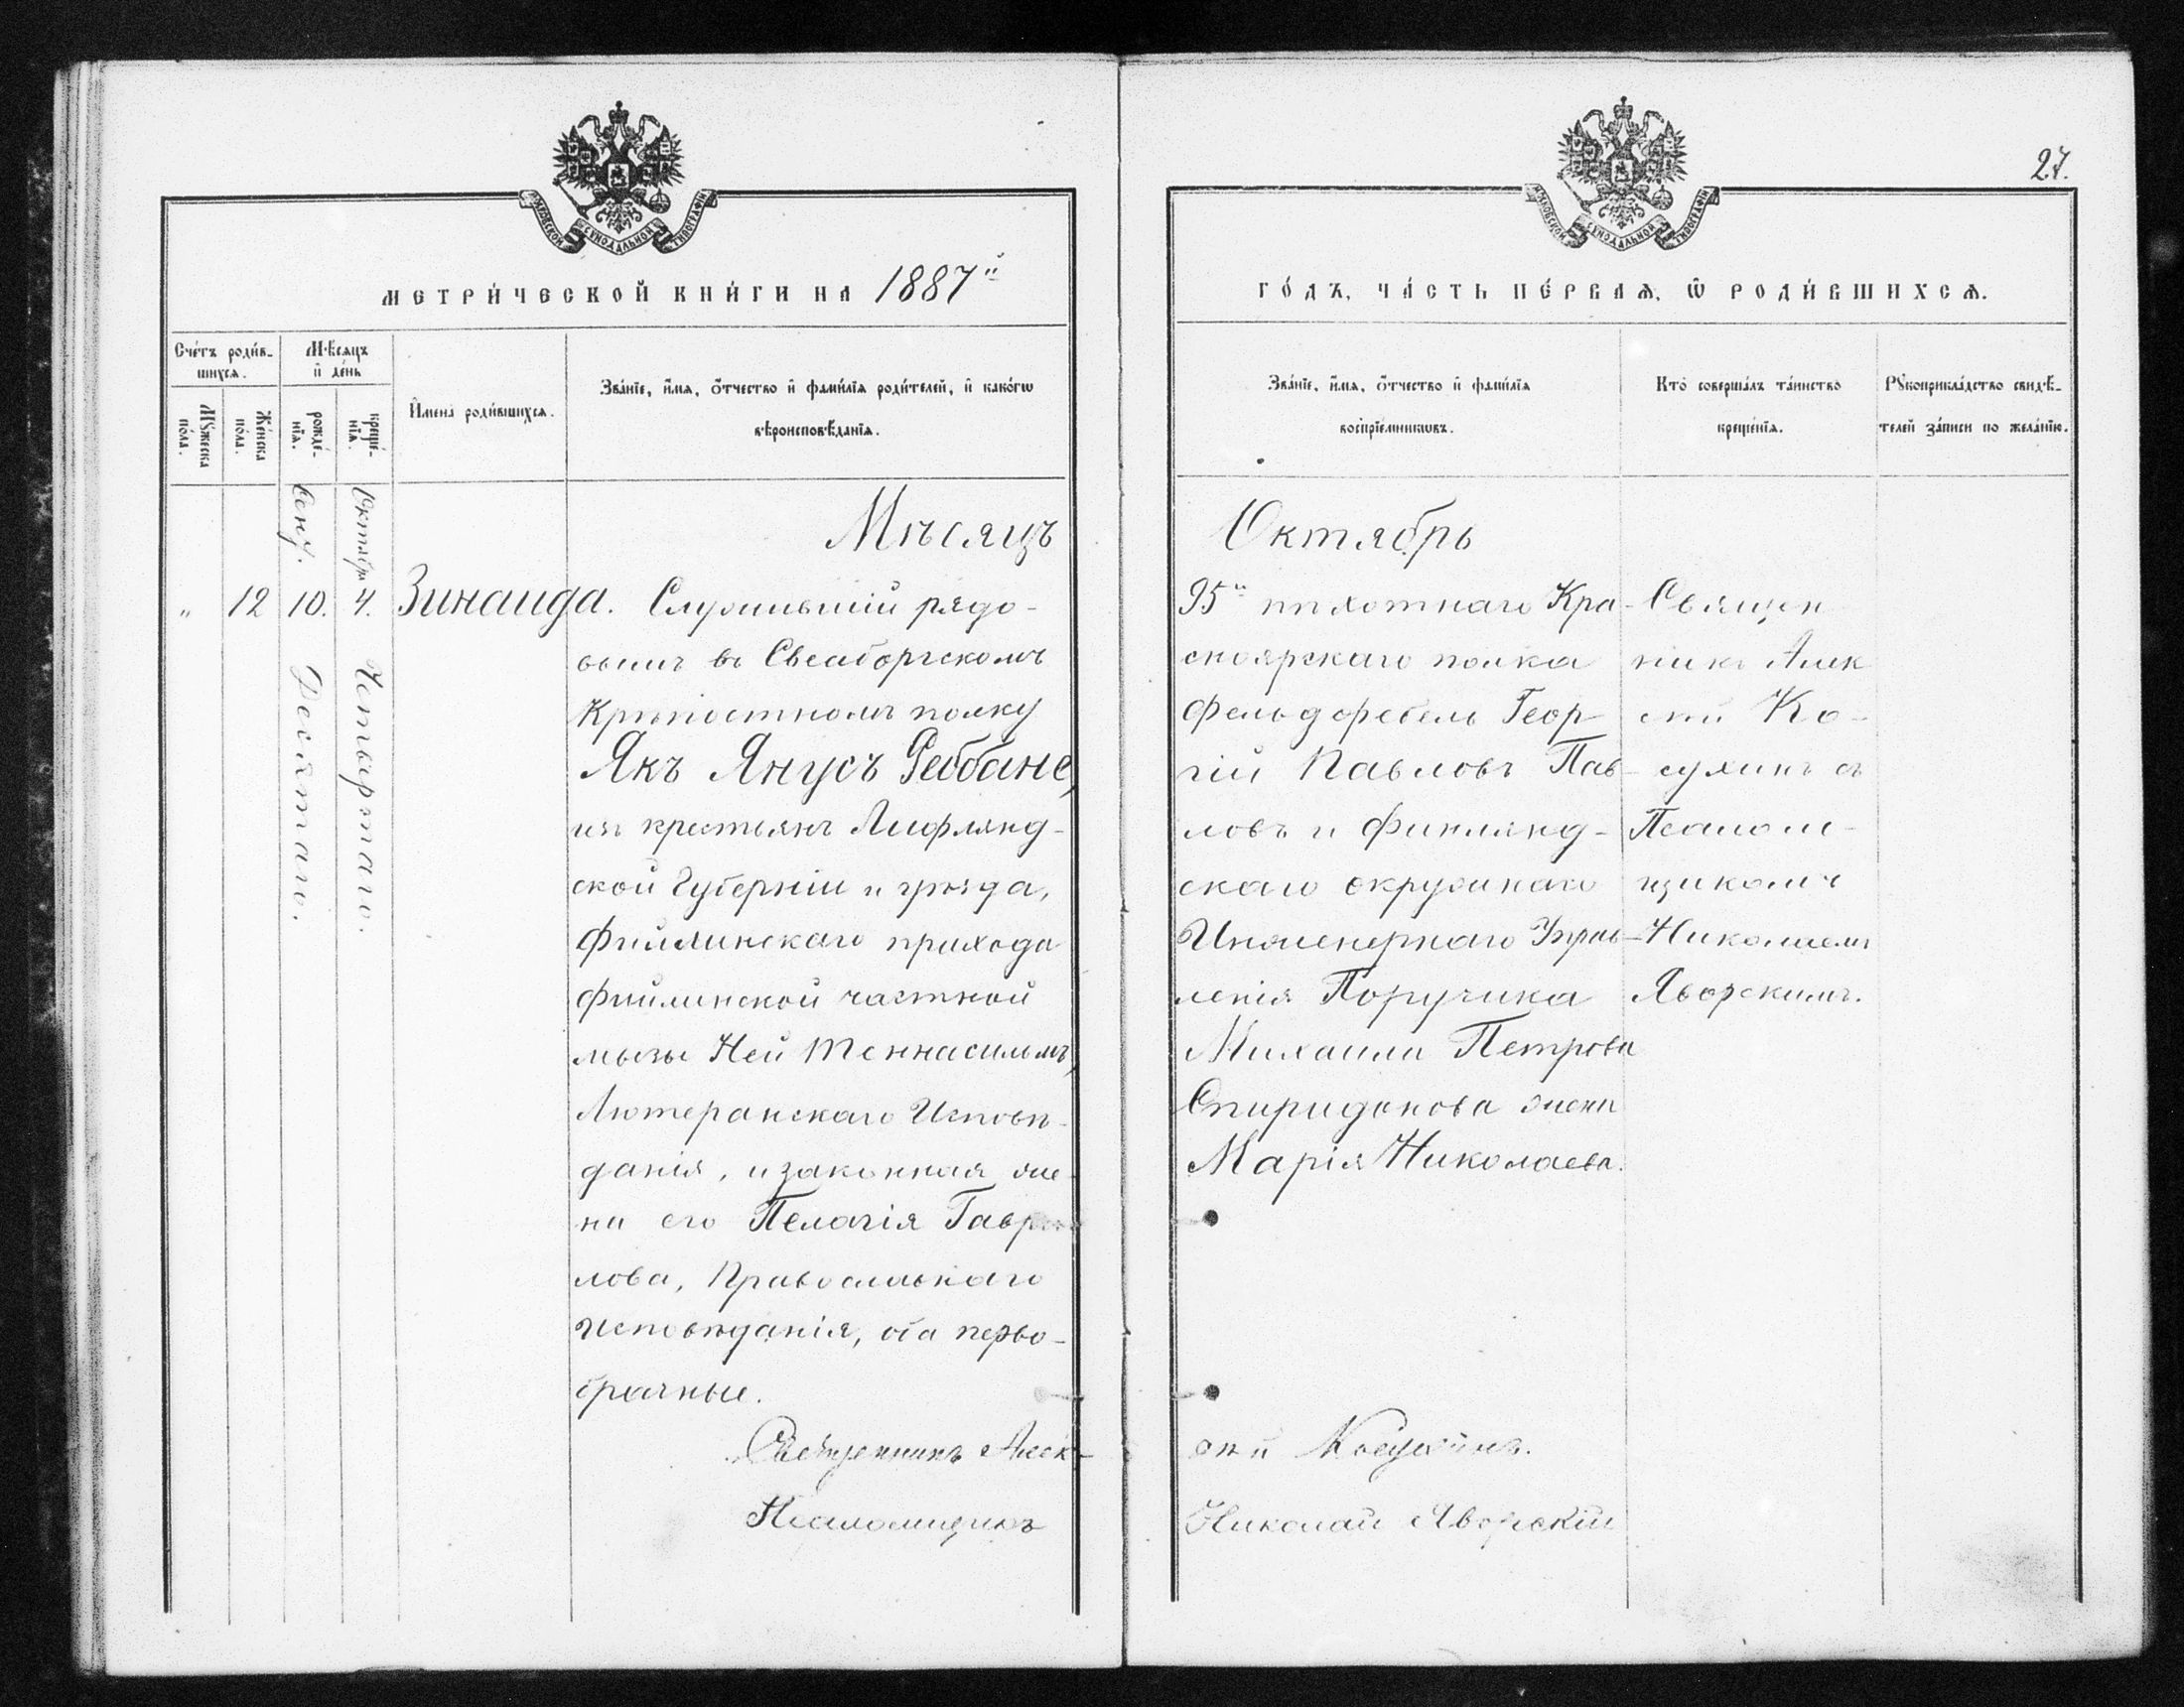 27.
МЕТРИ́ЧЕСКОЙ КНИ́ГИ НА 1887й
Сче́тъ роди́в-
шихся.
Мѣ́сяцъ
и҆ де́нь
Мꙋжеска
по́ла.
Же́нска
по́ла.
рожде́-
нїѧ.
креще́-
нїѧ.
И҆мена̀ роди́вшихсѧ.
Зва́нїе, и҆́мѧ, ѻ҆́тчество и҆ фами́лїѧ роди́телей, и҆ како́гѡ
вѣроисповѣ́данїѧ.
Мѣсяцъ
Сент.
Октябрь
" 12 10. 4. Зинаида.
Десятаго.
Четвертаго.
Служившій рядо-
вымъ въ Свеаборгскомъ
Крѣпостномъ полку
Якъ Янусъ Реббане,
изъ крестьянъ Лифлянд-
ской Губерніи и уѣзда,
Феллинскаго прихода
Феллинской частной
мызы Ней Теннасильмъ,
Лютеранскаго Исповѣ-
данія, и законная же-
на его Пелагія Гаври-
лова, Православнаго
Исповѣданія, оба перво-
брачные.
Священникъ Алек-
Псаломщикъ
ГО́ДЪ, ЧА́СТЬ ПЕ́РВАѦ, Ѡ҆ РОДИ́ВШИХСѦ.
Зва́нїе, и҆́мѧ, ѻ҆́тчество и҆ фами́лїѧ
воспрїе́мникѡвъ.
Кто̀ соверша́лъ та́инство
креще́нїѧ.
Рꙋкоприкла́дство свидѣ́-
телей за́писи по жела́нїю.
Октябрь
95й пѣхотнаго Кра-
сноярскаго полка
Фельдфебель Геор-
гій Павловъ Пав-
ловъ и Финлянд-
скаго окружнаго
Инженернаго Управ-
ленія Поручика
Михаила Петрова
Спиридонова жена
Марія Николаева.
Священ
никъ Алек
сѣй Ко-
сухинъ съ
Псалом-
щикомъ
Николаемъ
Яворскимъ.
сѣй Косухинъ.
Николай Яворскій